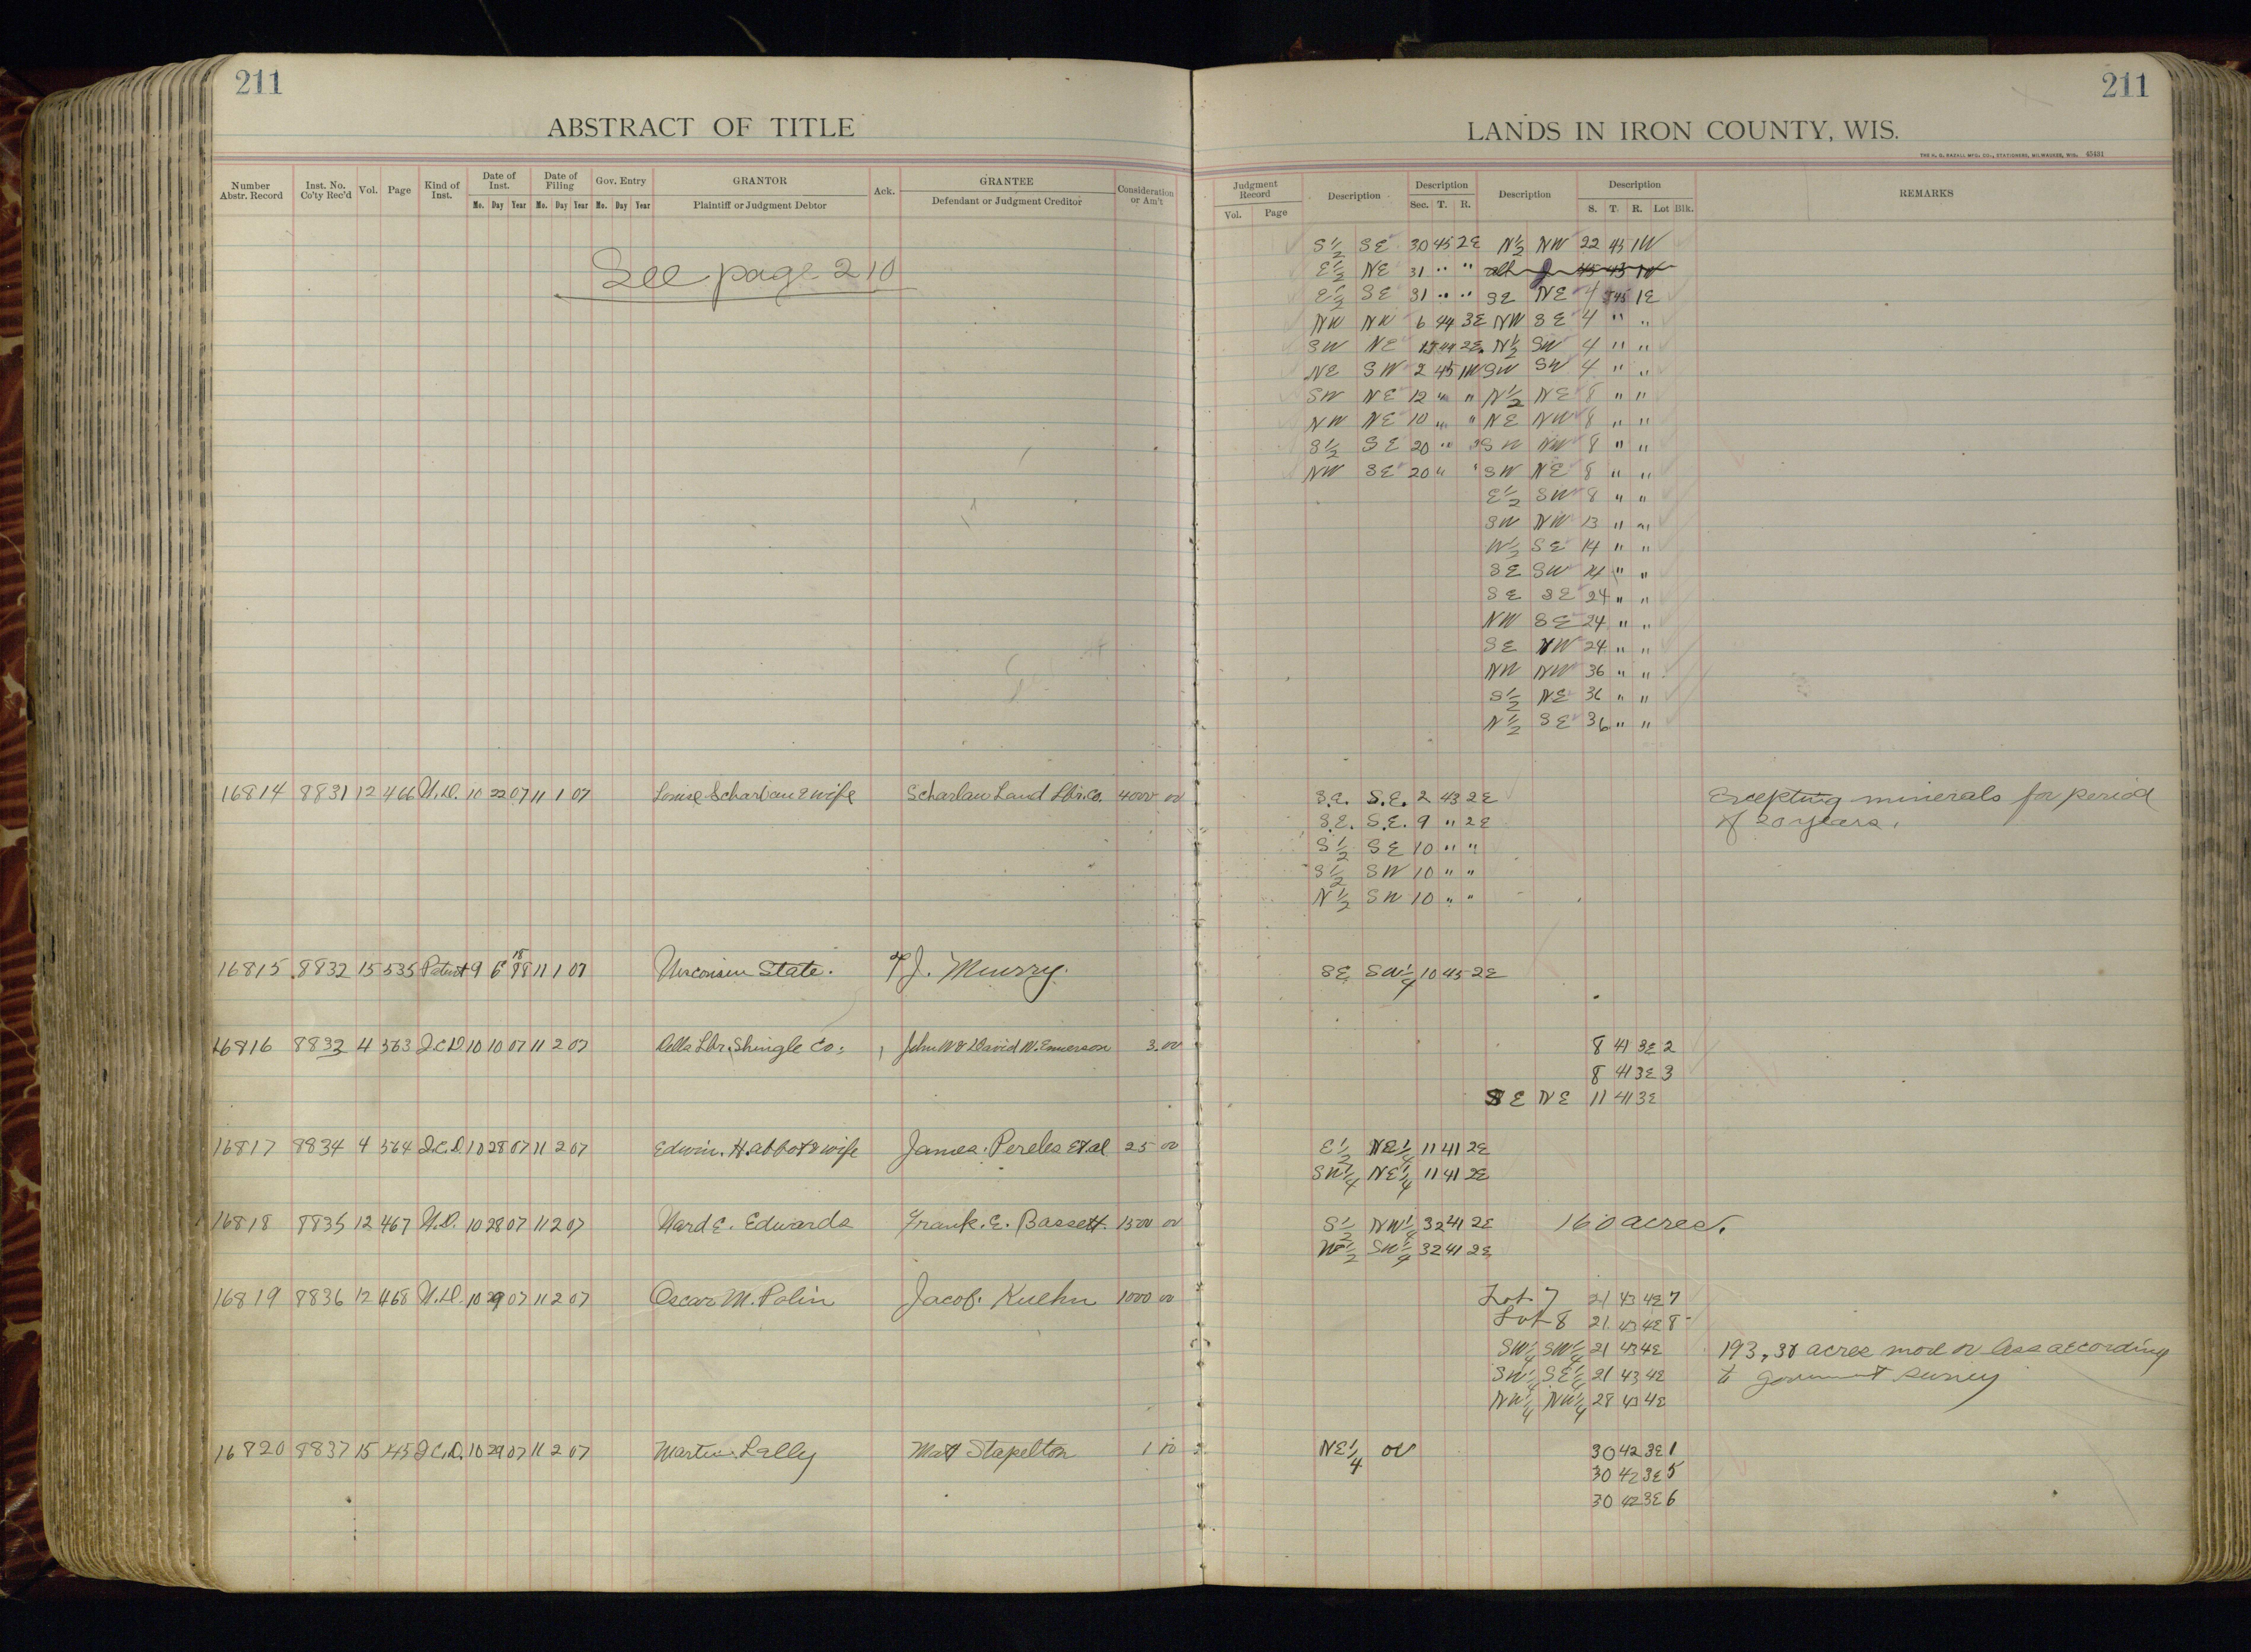 211
ABSTRACT OF TITLE
Number Abstr. Record Inst. No. Co'ty Rec'd Vol. Page Kind of Inst. Date of Inst. Mo. Day Year Date of Filing Mo. Day Year Gov. Entry Mo. Day Year GRANTOR Plaintiff or Judgment Debtor Ack. GRANTEE Defendant or Judgment Creditor Consideration or Am't
See page 210
16814 8831 12 466 W.D. 10 22 07 11 1 07 Louise Scharlau & wife Scharlau Land Lbr. Co. 4000 00
16815 8832 15 535 Patent 9 6 1888 11 1 07 Wisconsin State. J. Murry.
16816 8833 4 563 Q.C.D. 10 10 07 11 2 07 Della Lbr. Shingle Co. John W & David W. Emmerson 3.00
16817 8834 4 564 Q.C.D. 10 28 07 11 2 07 Edwin. H. Abbot & wife James. Pereles Et al 25 00
16818 8835 12 467 W.D. 10 28 07 11 2 07 Ward E. Edwards Frank. E. Bassett 1500 00
16819 8836 12 468 W.D. 10 29 07 11 2 07 Oscar M. Polin Jacob. Kuehn 1000 00
16820 8837 15 145 Q.C.D. 10 29 07 11 2 07 Martin Lally Matt Stapelton 1 00
211
LANDS IN IRON COUNTY, WIS.
THE H. G. RAZALL MFG. CO., STATIONERS, MILWAUKEE, WIS. 49401
Judgment Record Vol. Page Description Description Sec. T. R. Description Description S. T. R. Lot Blk. REMARKS
S½ SE 30 45 2E N½ NW 22 45 1W
E½ NE 31 " " all 15 43 1W
E½ SE 31 " " SE NE 4 45 1E
NW NW 6 44 3E NW SE 4 " "
SW NE 18 44 2E N½ SW 4 " "
NE SW 2 45 1W SW SW 4 " "
SW NE 12 " " N½ NE 8 " "
NW NE 10 " " NE NW 8 " "
S½ SE 20 " " SW NW 8 " "
NW SE 20 " " SW NE 8 " "
E½ SW 8 " "
SW NW 13 " "
W½ SE 14 " "
SE SW 14 " "
SE SE 24 " "
NW SE 24 " "
SE NW 24 " "
NW NW 36 " "
S½ NE 36 " "
N½ SE 36 " "
S.E. S.E. 2 43 2E Excepting minerals for period
S.E. S.E. 9 " 2E of 20 years.
S½ SE 10 " "
S½ SW 10 " "
N½ SW 10 " "
SE SW¼ 10 45 2E
8 41 3E 2
8 41 3E 3
SE NE 11 41 3E
E½ NE¼ 11 41 2E
SW¼ NE¼ 11 41 2E
S½ NW¼ 32 41 2E 160 acres.
W½ SW¼ 32 41 2E
Lot 7 21 43 4E 7
Lot 8 21 43 4E 8
SW¼ SW¼ 21 43 4E 193.38 acres more or less according
SW¼ SE¼ 21 43 4E to government survey
NW¼ NW¼ 28 43 4E
NE¼ or 30 42 3E 1
30 42 3E 5
30 42 3E 6